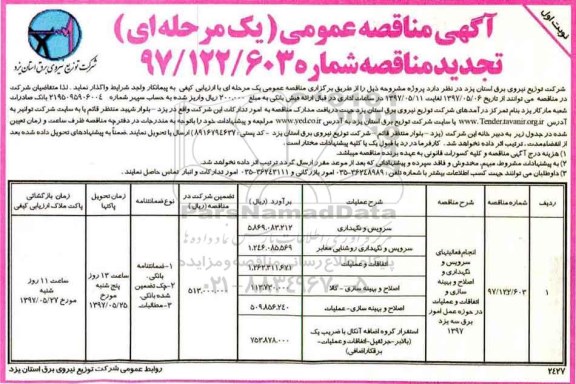 نوبت اول
آگهی مناقصه عمومی (یک مرحله ای)
تجدید مناقصه شماره ۹۷/۱۲۲/۶۰۳
شرکت توزیع نیروی برق استان یزد
شرکت توزیع نیروی برق استان یزد در نظر دارد پروژه مشروحه ذیل را از طریق برگزاری مناقصه عمومی یک مرحله ای با ارزیابی کیفی به پیمانکار واجد شرایط واگذار نماید. لذا متقاضیان شرکت
در مناقصه می توانند از تاریخ ۹۷/۰۵/۰۶ لغایت ۱۳۹۷/۰۵/۱۱ در ساعات اداری در قبال ارائه فیش بانکی به مبلغ ۲۰۰,۰۰۰ ریال واریز شده به حساب سیبر شماره بانک صادرات
شعبه مدرس یزد بنام تمرکز درآمدهای شرکت توزیع نیروی برق استان یزد جهت دریافت مدارک مناقصه به امور تدارکات این شرکت واقع در یزد - بلوار شهید منتظر قائم یا به سایت شرکت توانیر به
آدرس www.Tender.tavanir.org.ir یا سایت شرکت توزیع برق استان یزد به آدرس www.yed.co.ir مراجعه و پیشنهادات خود را با توجه به مندرجات در دفترچه مناقصه ظرف ساعت و زمان تعیین
شده در جدول زیر به دبیرخانه این شرکت (یزد - بلوار منتظر قائم - شرکت توزیع نیروی برق استان یزد - کد پستی: ۸۹۱۶۷۹۴۶۳۷) ارسال یا تحویل نمایند. ضمناً به پیشنهادهای تحویل داده شده بعد
از انقضاء مدت، ترتیب اثر داده نخواهد شد. کارفرما در رد یا قبول یک یا کلیه پیشنهادات مختار است.
۱) هزینه درج آگهی مناقصه و کلیه کسورات قانونی به عهده برنده مناقصه میباشد.
۲) به پیشنهادات مشروط، مبهم، مخدوش و فاقد سپرده و پیشنهاداتی که بعد از موعد مقرر ارسال گردد ترتیب اثر داده نخواهد شد.
۳) داوطلبان می توانند جهت کسب اطلاعات بیشتر با شماره تلفن: ۳۶۲۴۸۹۸۹-۰۳۵ امور بازرگانی و ۳۶۲۴۳۱۱۱-۰۳۵ امور تدارکات و انبار تماس حاصل نمایند.
ردیف
شماره مناقصه
شرح مناقصه
شرح عملیات
برآورد (ریال)
تضمین شرکت در مناقصه (ریال)
نوع ضمانتنامه
زمان تحویل پاکتها
زمان بازگشائی پاکات ملاک ارزیابی کیفی
۱
۹۷/۱۲۲/۶۰۳
انجام فعالیتهای
سرویس و
نگهداری و
اصلاح و بهینه
سازی و
اتفاقات و عملیات
در حوزه عمل امور
برق سه یزد
۱۳۹۷
سرویس و نگهداری
۵.۸۶۹.۰۸۳.۲۱۲
سرویس و نگهداری روشنایی معابر
۱.۲۴۶.۰۸۵.۵۶۹
اتفاقات و عملیات
۱.۲۶۲.۲۱۱.۶۷۱
اصلاح و بهینه سازی - کالا
۱۱۳.۷۳۰.۰۰۰
اصلاح و بهینه سازی - عملیات
۵۰۹.۸۵۶.۲۴۰
استقرار گروه اضافه آنکال با ضریب یک
(بالابر-جرثقیل-اتفاقات و عملیات-
برقکار اضافی)
۷۵۳.۸۷۸.۰۰۰
۵۱۳.۰۰۰.۰۰۰
۱-ضمانتنامه
بانکی.
۲-چک تضمین
شده بانکی.
۳-مطالبات
ساعت ۱۳ روز
پنج شنبه
مورخ
۱۳۹۷/۰۵/۲۵
ساعت ۱۱ روز
شنبه
مورخ ۱۳۹۷/۰۵/۲۷
ParsNamadData
پایگاه اطلاع رسانی مناقصه و مزایده
۰۲۱-۸۸۳۴۹۶۷۰
۲۴۲۷
روابط عمومی شرکت توزیع نیروی برق استان یزد